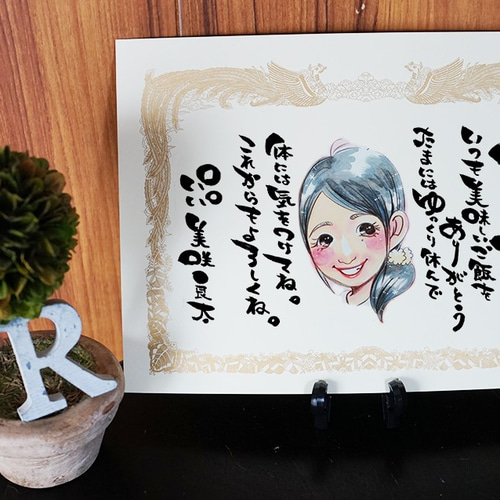 いつも美味しいご飯を
ありがとう
たまにはゆっくり休んで
体には気をつけてね。
これからもよろしくね。
美咲 豆太
R